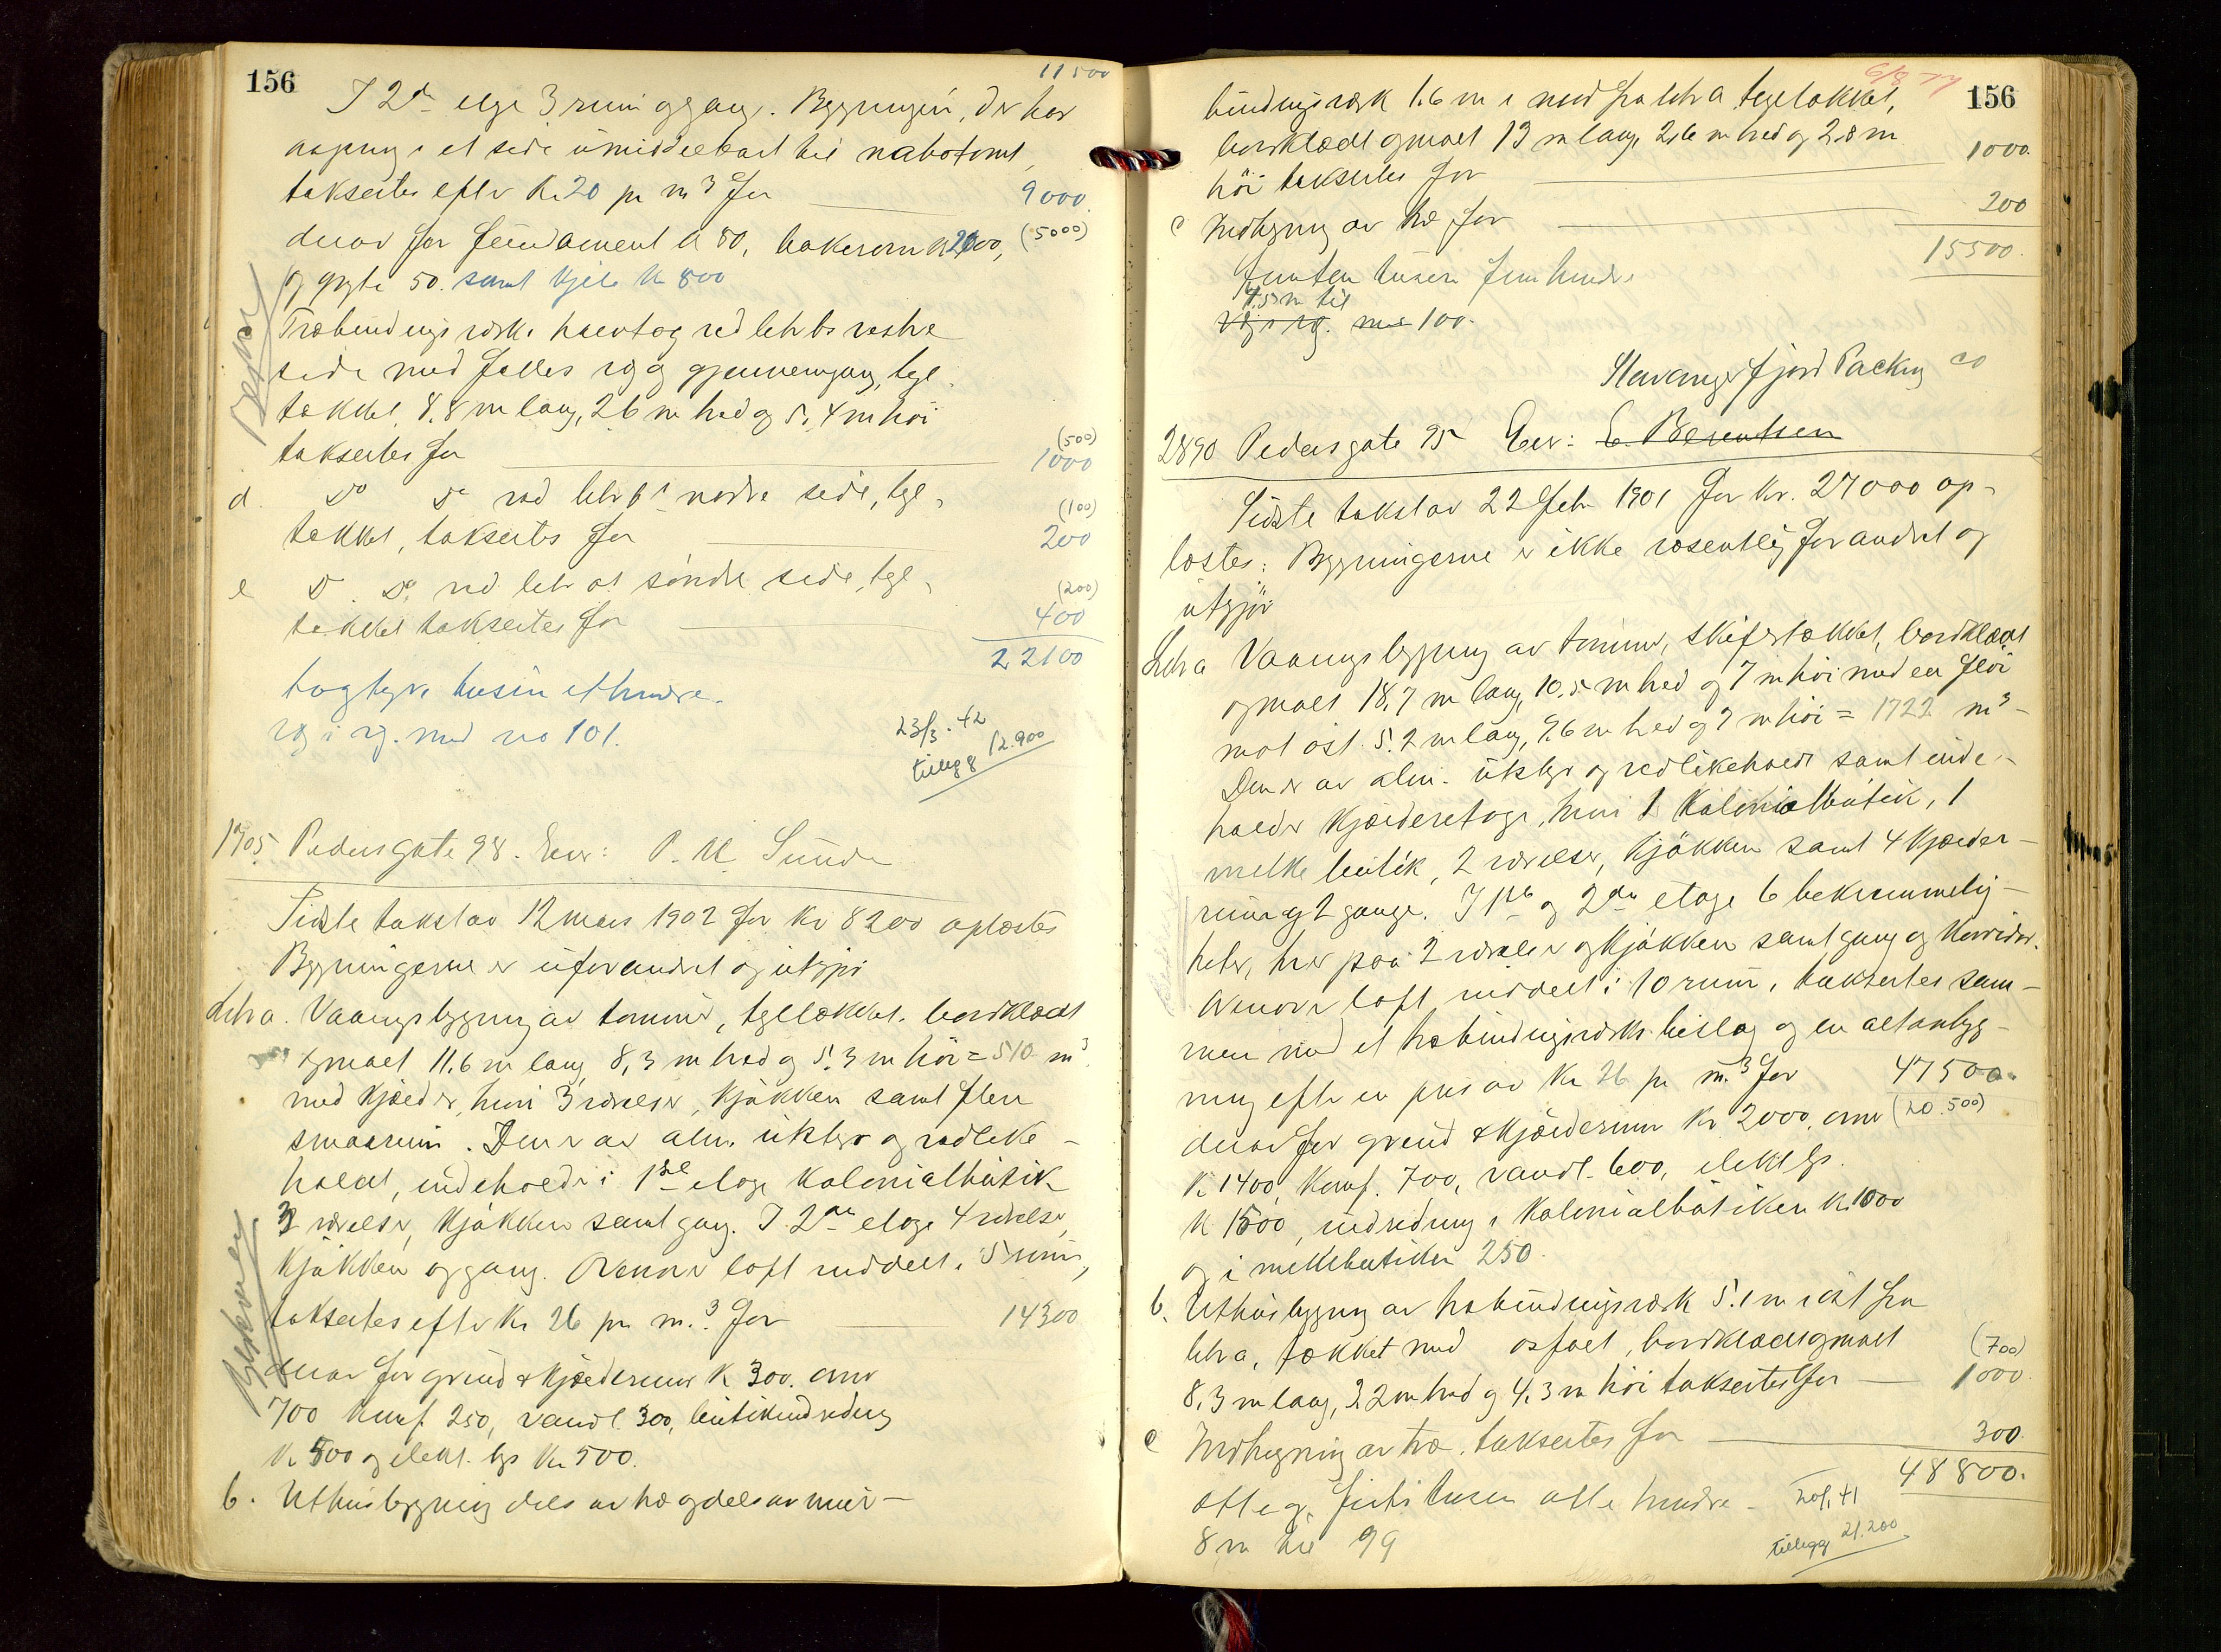 156
11500
I 2den etge 3 rum og gang. Bygningen, der har
aapning i et side umiddelbart til nabotomt,
takseertes efter Kr 20 pr m3 for 9000
derav for fundament kr 80, bakerovn kr 2000, (5000)
og gryte 50. samt kjele kr 800
Træbindingsverks halvtag ved litr bs vestre
side med fælles væg og gjennemgang, tegl
tækket, 8,8 m lang, 2,6 m bred og 5,4 m höi
takseertes for (500) 1000
d. Do Do ved litr bs nordre side, tegl
tækket, takseertes for (100) 200
e Do. Do. ved litr as söndre side, tegl
tækket takseertes for (200) 400
22100
togtyve tusin ethundre.
væg i vg. med no 101.
23/3. 42
tillegg 12.900
1905 Pedersgate 98. Eier: P. M. Sunde
Sidste takst av 12 mars 1902 for Kr 8200 oplæstes
Bygningerne er uforandret og utgjör
Litra. Vaaningsbygning av tømmer, tegltækket, bordklædt
og maalt 11,6 m lang, 8,3 m bred og 5,3 m höi = 510 m3
med kjælder, hvori 3 værelser, kjökken samt flere
smaarum. Den er av alm. utstyr og vedlike-
holdt, indeholder i 1ste etage Kolonialbutik
3 værelser, kjökken samt gang. I 2den etage 4 værelser,
kjökken og gang. Ovenover loft inddelt i 5 rum,
takseertes efter Kr 26 pr m.3 for 14300
derav for grund & kjælderrum K 300. ovne
700 komf. 250, vandl. 300, butikindredning
Kr 500 og elekt. lys Kr 500.
b. Uthusbygning dels av træ og dels av mur-
6/8-74
156
bindingsverk 1.6 m i nord fra litr a tegltækket,
bordklædt og maalt 13 m lang, 2,6 m bred og 2,8 m
höi takseertes for 1000.
c Indhegning av træ for 200
15500.
femten tusen fem hundre
4.5 m til
væg i vg. no 100.
Stavangerfjord Packing Co
2890 Pedersgate 95 Eier: E. Berentsen
Sidste takst av 22 febr 1901 for kr. 27000 op-
læstes: Bygningerne er ikke væsentlig forandret og
utgjör
Litra Vaaningsbygning av tømmer, skifertækket, bordklædt
og maalt 18,7 m lang, 10,5 m bred og 7 m höi med en flöi
mot öst 5.2 m lang, 9,6 m bred og 7 m höi = 1722 m3
Den er av alm. utstyr og vedlikeholdt samt inde-
holder kjælderetage, hvori 1 Kolonialbutik, 1
melke butik, 2 værelser, kjökken samt 4 kjælder-
rum og 2 gange. I 1ste og 2den etage 6 bekvemmelig-
heter, hver paa 2 værelser og kjökken samt gang og korridor.
Ovenover loft inddelt i 10 rum, takseertes sam-
men med et træbindingsverks bislag og en altanbyg-
ning efter en pris av Kr 26 pr m.3 for 47500.
derav for grund & kjælderrum Kr 2000, ovne (20.500)
Kr 1400, komf. 700, vandl. 600, elekt lys
Kr 1500, indredning i Kolonialbutiken Kr. 1000
og i melkebutiken 250.
b. Uthusbygning av træbindingsverk 5.1 m i öst fra
litr a, tækket med asfalt, bordklædt og maalt (700)
8,3 m lang, 3,2 m bred og 4,3 m höi takseertes for 1000.
c Indhegning av træ. takseertes for 300.
48800.
otte og förti tusen otte hundre
8 m til 99
20/1 41
tillegg 21.200